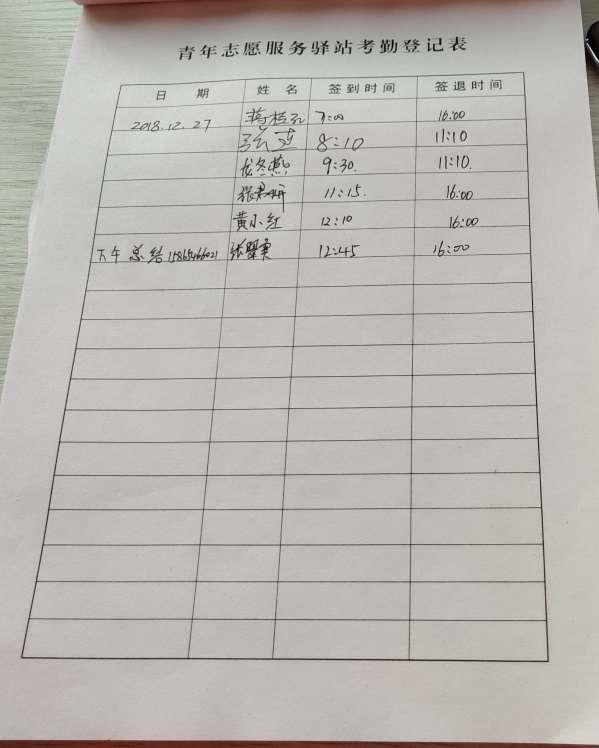 青年志愿服务驿站考勤登记表
日期 姓名 签到时间 签退时间
2018.12.27 蒋桂 7:00 16:00
张 8:10 11:10
龙冬燕 9:30. 11:10.
张 11:15. 16:00
黄小红 12:10 16:00
下午总结 张 12:45 16:00